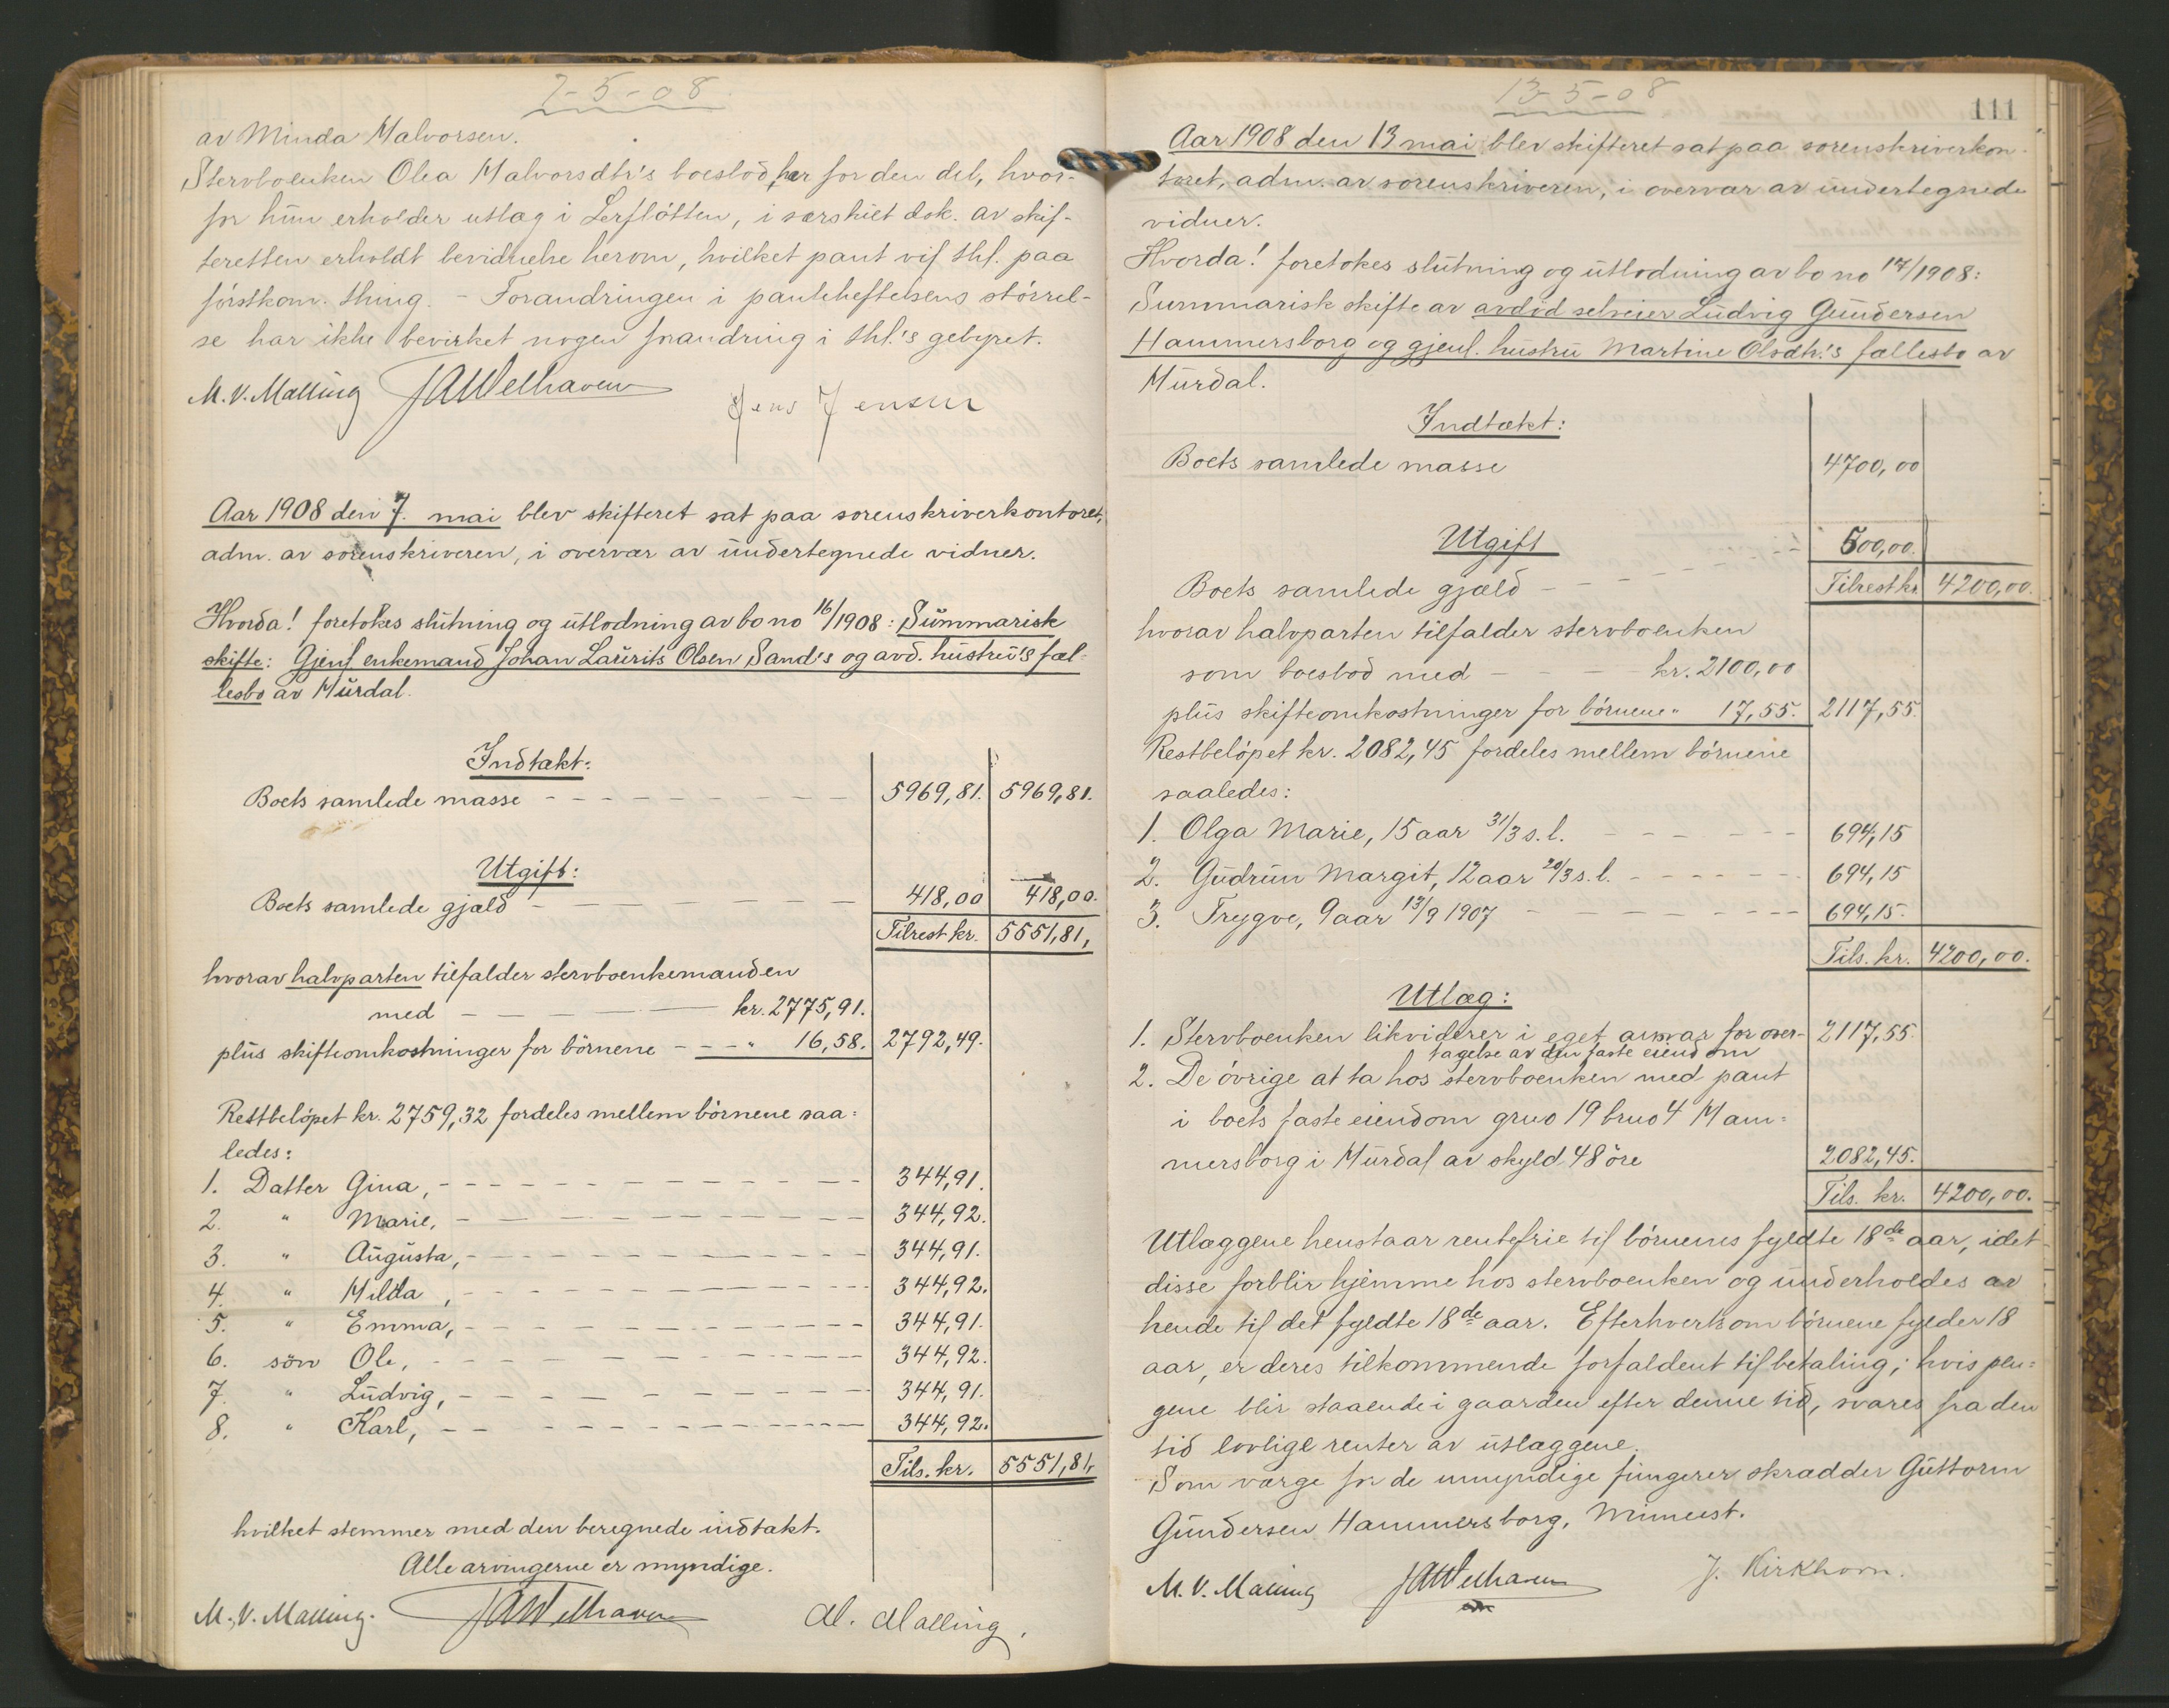 7-5-08
av Minda Halvorsen.
Stervboenken Olea Halvorsdtr's boeslod, har for den del, hvor-
for hun erholder utlæg i Lerflötten, i særskilt dok. av skif-
teretten erholdt bevidnelse herom, hvilket pant vil thl. paa
förstkom. thing. - Forandringen i panteheftelsens störrel-
se har ikke bevirket nogen forandring i thl.'s gebyret.
M. V. Malling JAWelhaven
Jens Jensen
Aar 1908 den 7. mai blev skifteret sat paa sorenskriverkontoret,
adm. av sorenskriveren, i overvær av undertegnede vidner.
Hvorda! foretokes slutning og utlodning av bo no 16/1908: Summarisk
skifte: Gjenl enkemand Johan Laurits Olsen Sand's og avd. hustru's fæl-
lesbo av Hurdal.
Indtækt:
Boets samlede masse - - - 5969,81. 5969,81.
Utgift:
Boets samlede gjæld - - - 418,00 418,00.
Tilrest kr. 5551,81,
hvorav halvparten tilfalder stervboenkemanden
med - - - kr. 2775,91.
plus skifteomkostninger for börnene - - - " 16,58. 2792,49.
Restbelöpet kr. 2759,32 fordeles mellem börnene saa=
ledes:
1. Datter Gina, - - - 344,91.
2. " Marie, - - - 344,92.
3. " Augusta, - - - 344,91.
4. " Hilda, - - - 344,92.
5. " Emma, - - - 344,91.
6. sön Ole, - - - 344,92.
7. " Ludvig, - - - 344,91.
8. " Karl, - - - 344,92.
Tils. kr. 5551,81,
hvilket stemmer med den beregnede indtækt.
Alle arvingerne er myndige.
M. V. Malling. JAWelhaven Al. Malling.
13-5-08
111
Aar 1908 den 13 mai blev skifteret sat paa sorenskriverkon-
toret, adm. av sorenskriveren, i overvær av undertegnede
vidner.
Hvorda! foretokes slutning og utlodning av bo no 17/1908:
Summarisk skifte av avdöd selveier Ludvig Gundersen
Hammersborg og gjenl. hustru Martine Olsdtr.'s fællesbo av
Hurdal.
Indtækt:
Boets samlede masse 4700,00
Utgift
Boets samlede gjæld - - - 500,00.
Tilrest kr 4200,00.
hvorav halvparten tilfalder stervboenken
som boeslod med - - - kr. 2100,00
plus skifteomkostninger for börnene " 17,55. 2117,55.
Restbelöpet kr. 2082,45 fordeles mellem börnene
saaledes:
1. Olga Marie, 15 aar 31/3 s. l. - - - 694,15
2. Gudrun Margit, 12 aar 20/3 s. l. - - - 694,15
3. Trygve, 9 aar 13/9 1907 - - - 694,15.
Tils. kr. 4200,00.
Utlæg:
1. Stervboenken likviderer i eget ansvar for over- 2117,55.
tagelse av den faste eiendom
2. De övrige at ta hos stervboenken med pant
i boets faste eiendom grno 19 brno 4 Ham=
mersborg i Hurdal av skyld 48 öre 2082,45.
Tils. kr. 4200,00.
Utlæggene henstaar rentefrie til börnenes fyldte 18de aar, idet
disse forblir hjemme hos stervboenken og underholdes av
hende til det fyldte 18de aar. Efterhvert som börnene fylder 18
aar, er deres tilkommende forfaldent til betaling; hvis pen=
gene blir staaende i gaarden efter denne tid, svares fra den
tid lovlige renter av utlæggene.
Som værge for de umyndige fungerer skrædder Guttorm
Gundersen Hammersborg, Minnest.
M. V. Malling JAWelhaven J. Kirkhorn.